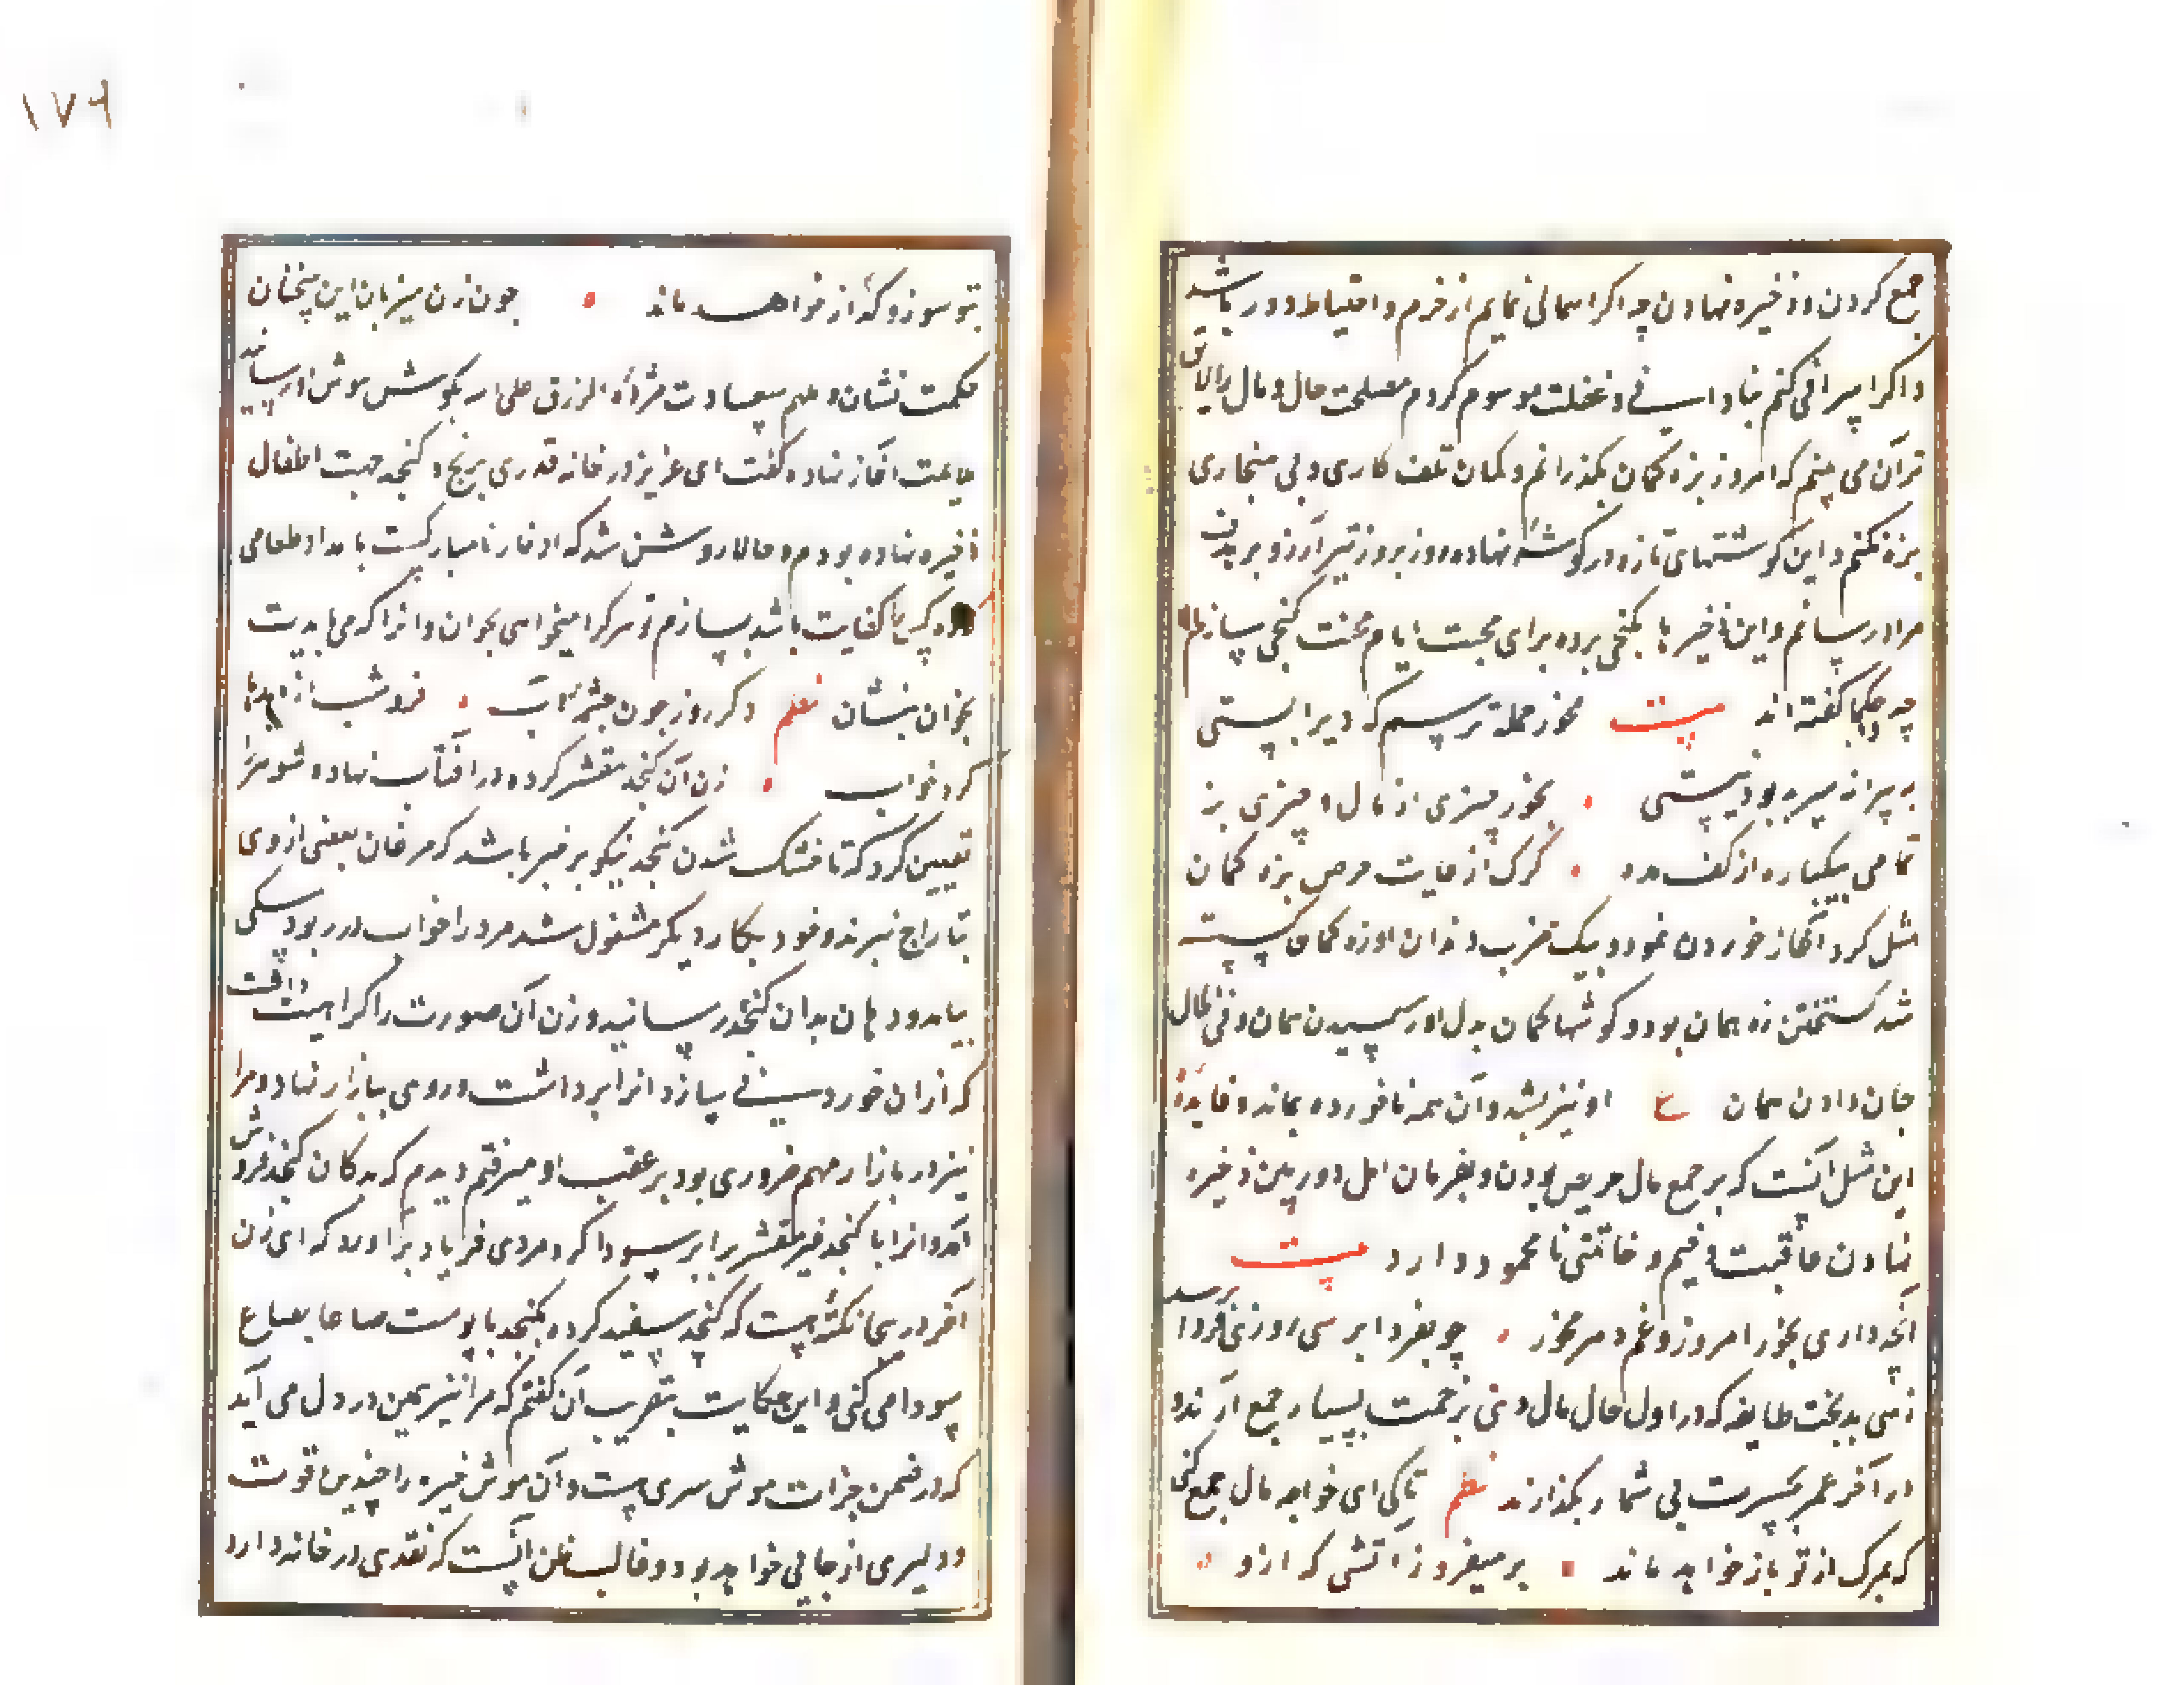 جمع کردن و ذخیره نهادن چه اکر اهمالی نمایم از حزم و احتیاط دور باشد
و اکر اسرافی کنم بنادانی و غفلت موسوم کردم مصلحت حال و مال را لایق
تر آن می بینم که امروز بزه کمان بکذرانم و کمان تلف کاری و بی هنجاری
بزه نکنم و این کوشتهای تازه در کوشهٔ نهاده روز بروز تیر آرزو بر هدف
مراد رسانم و این ذخیرها بکنجی برده برای محنت ایام محنت کنجی سازم
چه حکما کفته اند بیت مخور جمله ترسم که دیر ایستی
به پیرانه سر بد بود نیستی ۰ بخور چیزی از مال و چیزی بنه
تمامی بیکباره از کف مده ۰ کرک از غایت حرص بزه کمان
میل کرد آغاز خوردن نمود بیک ضرب دندان او زه کمان کسسته
شد کسیختن زه همان بود و کوشهٔ کمان بدل او رسیدن همان و فی الحال
جان دادن همان ع او نیز بشد و آن همه ناخورده بماند و فایدهٔ
این مثل آنست که بر جمع مال حریص بودن و بفرمان امل دور بین ذخیره
نهادن عاقبت وخیم و خاتمتی نامحمود دارد بیت
آنچه داری بخور امروز و غم دهر مخور ۰ چو بفردا برسی روزی فردا برسد
زهی بدبخت طایفه که در اول حال مال دنیی بزحمت بسیار جمع آرند و
در آخر عمر بحسرت بی شمار بکذارند نظم تا کی ای خواجه مال جمع کنی
که بمرک از تو باز خواهد ماند ۰ بر میفروز آتشی که ازو ۰
بتو سوز و کداز خواهد ماند ۰ چون زن میزبان این سخنان
حکمت نشان و ملهم سعادت مژدهٔ الرزق علی الله بکوش هوش او رسانید
ملایمت آغاز نهاده کفت ای عزیز در خانه قدری برنج و کنجد جهت اطفال
ذخیره نهاده بودم و حالا روشن شد که ادخار نامبارکست بامداد طعامی
که ده کس را کفایت باشد بسازم تو هر کرا میخواهی بخوان و آنرا که می بایدت
بخوان بنشان نظم دکر روز چون چشمهٔ آفتاب ۰ فرو شست از دیدها
کرد خواب ۰ زن آن کنجد مقشر کرده در افتاب نهاد و شوهر را
تعیین کرد که تا خشک شدن کنجد نیکو بر خبر باشد که مرغان بعضی از وی
بتاراج نبرند و خود بکار دیکر مشغول شد مرد را خواب در ربود سکی
بیامد و دهان بدان کنجد رسانید و زن آن صورت را کراهیت داشت
که ازان خوردنی سازد انرا برداشت و روی ببازار نهاد و مرا
نیز در بازار مهم ضروری بود بر عقب او میرفتم دیدم که بدکان کنجد فروش
آمد و انرا با کنجد غیر مقشر برابر سودا کرد مردی فریاد برآورد که ای زن
آخر درینجا نکتهٔ هست که کنجد سفید کرده بکنجد با پوست صاعا بصاع
سودا می کنی و این حکایت بتقریب آن کفتم که مرا نیز همین در دل می آید
که در ضمن جرات موش سری هست و آن موش خیره را چندین قوت
و دلیری از جایی خواهد بود و غالب ظن آنست که نقدی در خانه دارد
۱۷۹